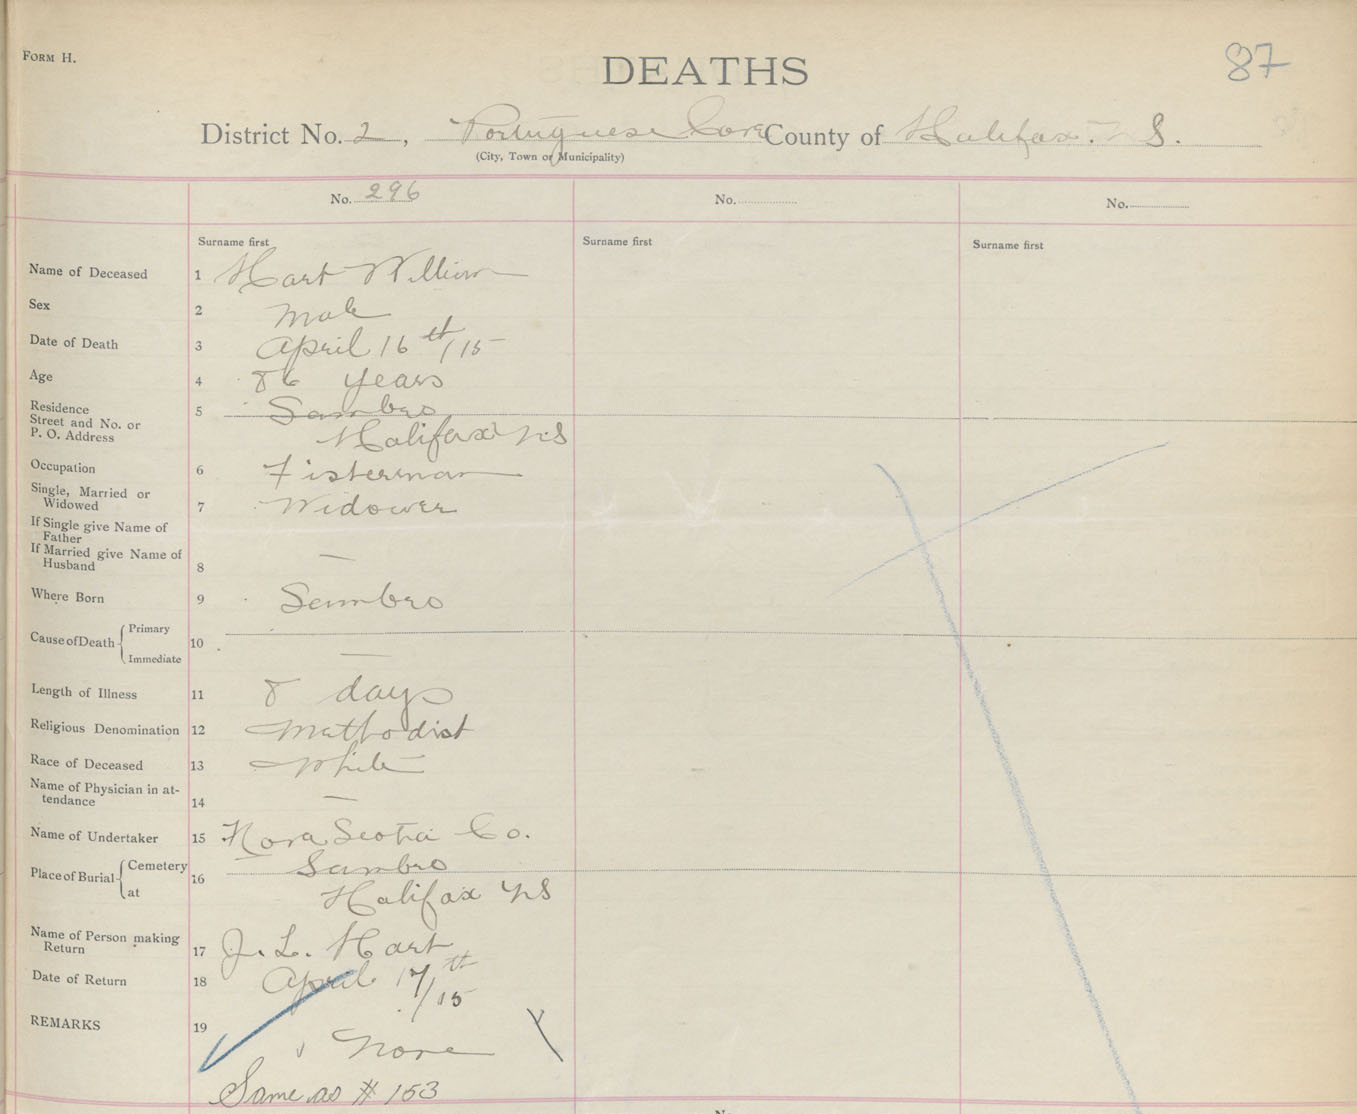 FORM H.
DEATHS
87
District No. 2, Portuguese Cove County of Halifax. N S.
(City, Town or Municipality)
No. 296
No.
No.
Surname first
Surname first
Surname first
Name of Deceased 1 Hart William
Sex 2 Male
Date of Death 3 April 16th/15
Age 4 86 years
Residence
Street and No. or
P. O. Address
5 Sambro
Halifax N S
Occupation 6 Fisherman
Single, Married or
Widowed 7 Widower
If Single give Name of
Father
If Married give Name of
Husband 8 —
Where Born 9 Sambro
Cause of Death { Primary
Immediate 10 —
Length of Illness 11 8 days
Religious Denomination 12 Methodist
Race of Deceased 13 White
Name of Physician in at-
tendance 14 —
Name of Undertaker 15 Nova Scotia Co.
Place of Burial { Cemetery
at 16 Sambro
Halifax NS
Name of Person making
Return 17 J. L. Hart
Date of Return 18 April 17th
/15
REMARKS 19
None
Same as # 153
No.